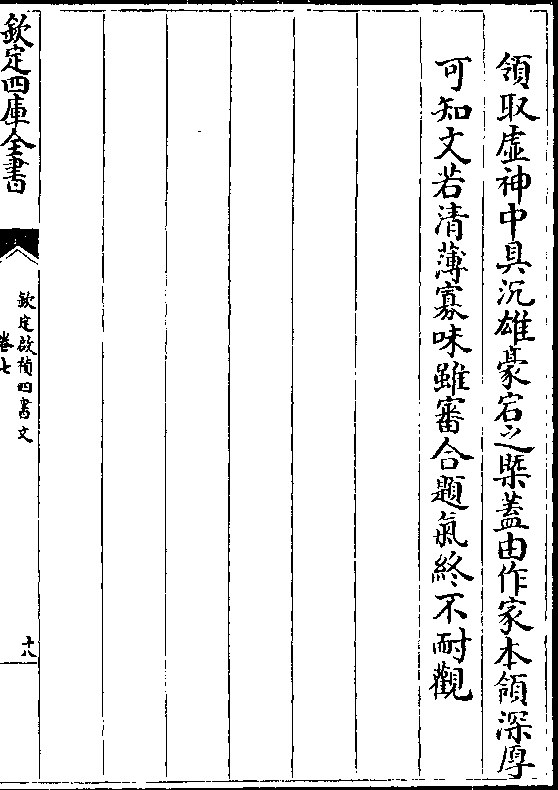 領取虛神中具沉雄豪宕之槩蓋由作家本領深厚
可知文若清薄寡味雖審合題氣終不耐觀
欽定四庫全書
欽定啟禎四書文
卷七
十八